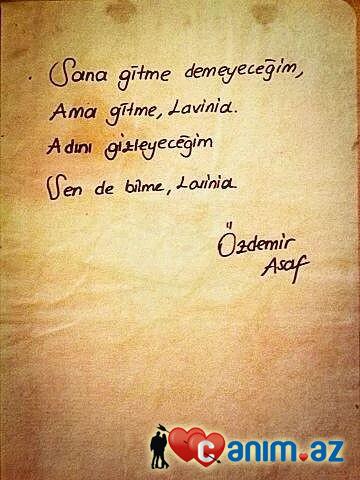 Sana gitme demeyeceğim,
Ama gitme, Lavinia.
Adını gizleyeceğim
Sen de bilme, Lavinia
Özdemir
Asaf
canim.az